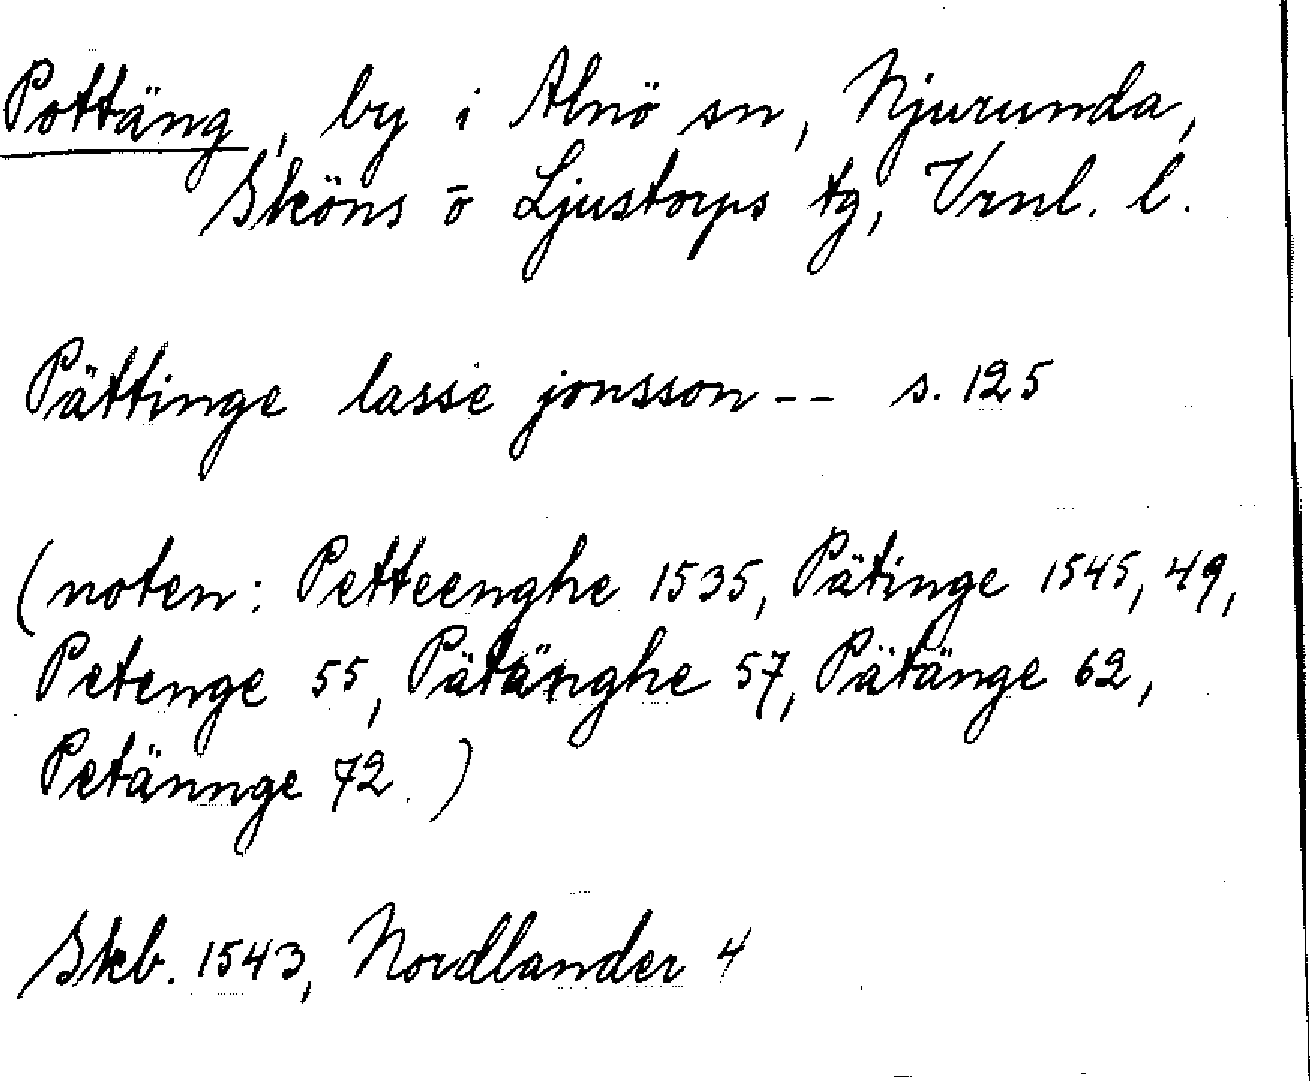 Pottäng, by i Alnö sn, Njurunda,
Sköns o Ljustorps tg, Vrnl. l.
Pättinge lasse jonsson -- s. 125
(noten: Petteenghe 1535, Pätinge 1545, 49,
Petenge 55, Pätänghe 57, Pätänge 62,
Petännge 72.)
Skb. 1543, Nordlander 4